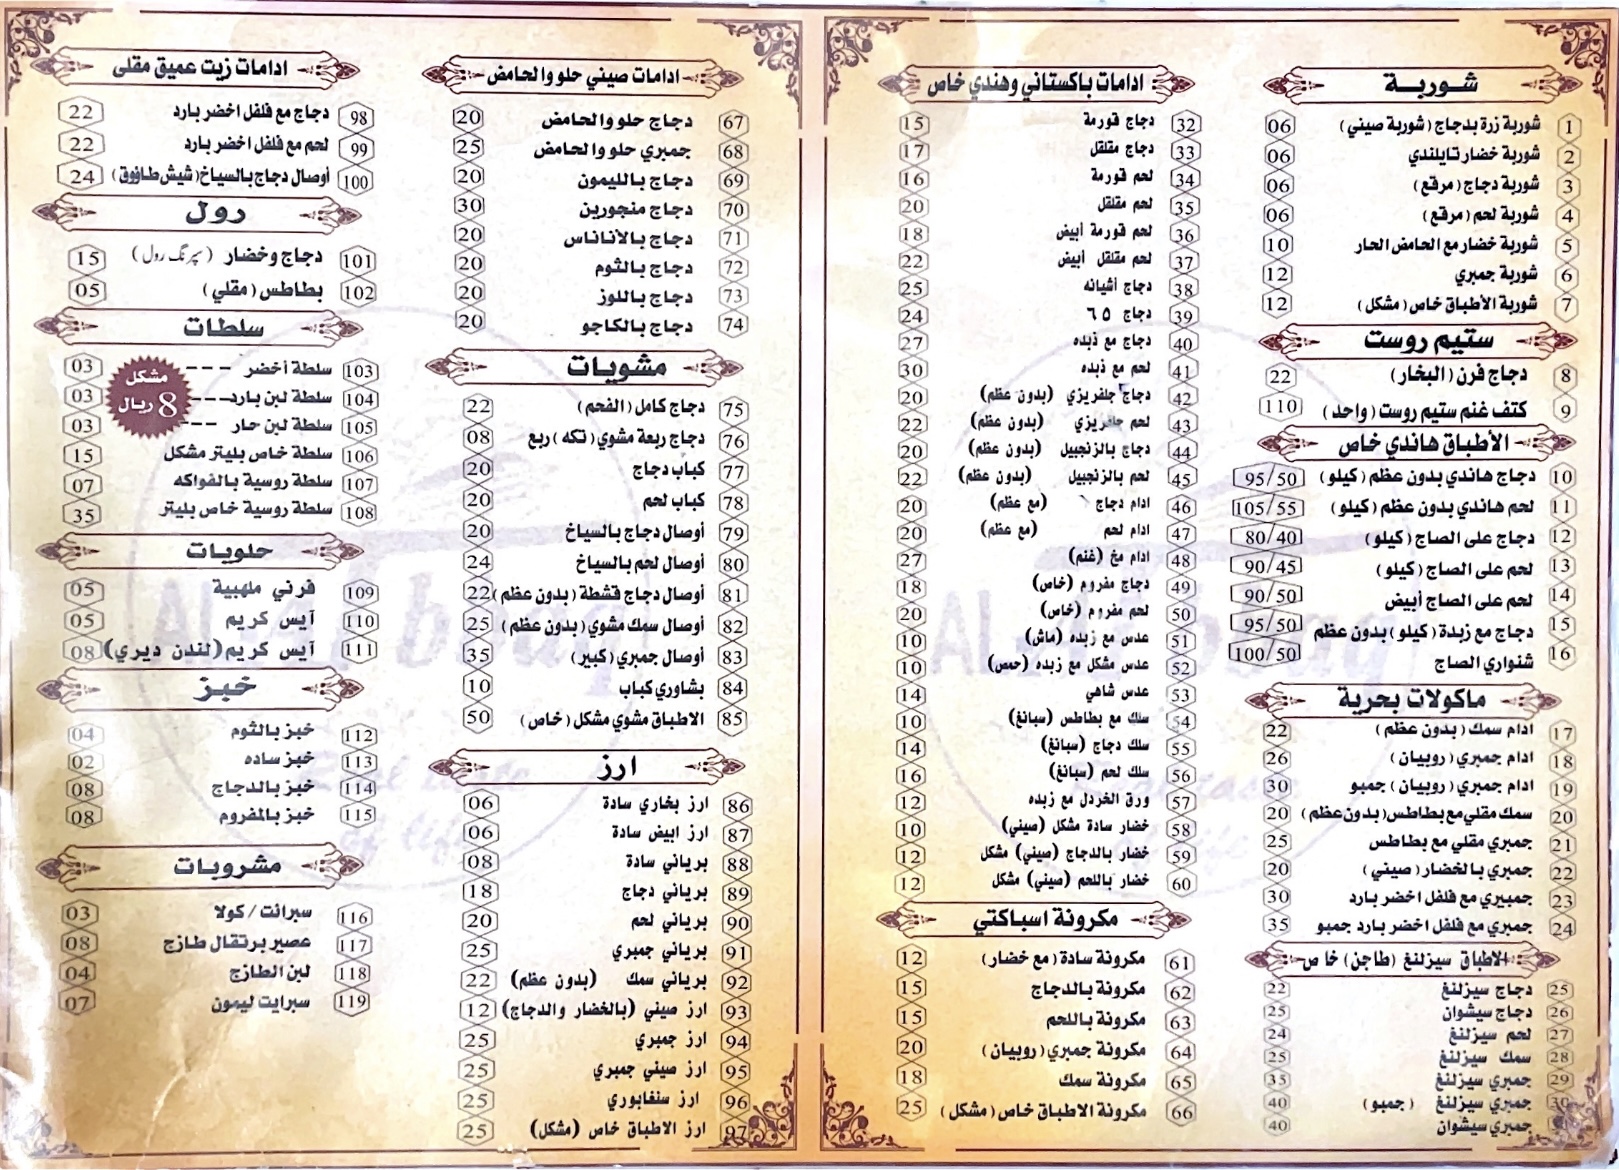 شوربة
1 شوربة زرة بدجاج (شوربة صيني) 06
2 شوربة خضار تايلندي 06
3 شوربة دجاج (مرقع) 06
4 شوربة لحم (مرقع) 06
5 شوربة خضار مع الحامض الحار 10
6 شوربة جمبري 12
7 شوربة الأطباق خاص (مشكل) 12
ستيم روست
8 دجاج فرن (البخار) 22
9 كتف غنم ستيم روست (واحد) 110
الأطباق هاندي خاص
10 دجاج هاندي بدون عظم (كيلو) 95/50
11 لحم هاندي بدون عظم (كيلو) 105/55
12 دجاج على الصاج (كيلو) 80/40
13 لحم على الصاج (كيلو) 90/45
14 لحم على الصاج أبيض 90/50
15 دجاج مع زبدة (كيلو) بدون عظم 95/50
16 شنواري الصاج 100/50
ماكولات بحرية
17 ادام سمك (بدون عظم) 22
18 ادام جمبري (روبيان) 26
19 ادام جمبري (روبيان) جمبو 30
20 سمك مقلي مع بطاطس (بدون عظم) 20
21 جمبري مقلي مع بطاطس 25
22 جمبري بالخضار (صيني) 20
23 جمبيري مع فلفل اخضر بارد 30
24 جمبري مع فلفل اخضر بارد جمبو 35
الاطباق سيزلنغ (طاجن) خاص
25 دجاج سيزلنغ 22
26 دجاج سيشوان 25
27 لحم سيزلنغ 24
28 سمك سيزلنغ 25
29 جمبري سيزلنغ 35
30 جمبري سيزلنغ (جمبو) 40
جمبري سيشوان 40
ادامات باكستاني وهندي خاص
32 دجاج قورمة 15
33 دجاج مقلقل 17
34 لحم قورمة 16
35 لحم مقلقل 20
36 لحم قورمة أبيض 18
37 لحم مقلقل أبيض 22
38 دجاج أشيانه 25
39 دجاج ٦٥ 24
40 دجاج مع ذبده 27
41 لحم مع ذبده 30
42 دجاج جلفريزي (بدون عظم) 20
43 لحم جلفريزي (بدون عظم) 22
44 دجاج بالزنجبيل (بدون عظم) 20
45 لحم بالزنجبيل (بدون عظم) 22
46 ادام دجاج (مع عظم) 20
47 ادام لحم (مع عظم) 20
48 ادام مخ (غنم) 27
49 دجاج مفروم (خاص) 18
50 لحم مفروم (خاص) 20
51 عدس مع زبده (ماش) 10
52 عدس مشكل مع زبده (حمص) 10
53 عدس شاهي 14
54 سلك مع بطاطس (سبانغ) 10
55 سلك دجاج (سبانغ) 14
56 سلك لحم (سبانغ) 16
57 ورق الخردل مع زبده 12
58 خضار سادة مشكل (صيني) 10
59 خضار بالدجاج (صيني) مشكل 12
60 خضار باللحم (صيني) مشكل 12
مكرونة اسباكتي
61 مكرونة سادة (مع خضار) 12
62 مكرونة بالدجاج 15
63 مكرونة باللحم 15
64 مكرونة جمبري (روبيان) 20
65 مكرونة سمك 18
66 مكرونة الاطباق خاص (مشكل) 25
ادامات صيني حلو والحامض
67 دجاج حلو والحامض 20
68 جمبري حلو والحامض 25
69 دجاج بالليمون 20
70 دجاج منجورين 30
71 دجاج بالاناناس 20
72 دجاج بالثوم 20
73 دجاج باللوز 20
74 دجاج بالكاجو 20
مشويات
75 دجاج كامل (الفحم) 22
76 دجاج ربعة مشوي (تكه) ربع 08
77 كباب دجاج 20
78 كباب لحم 20
79 أوصال دجاج بالسياخ 20
80 أوصال لحم بالسياخ 24
81 أوصال دجاج قشطة (بدون عظم) 22
82 أوصال سمك مشوي (بدون عظم) 25
83 أوصال جمبري (كبير) 35
84 بشاوري كباب 10
85 الاطباق مشوي مشكل (خاص) 50
ارز
86 ارز بخاري سادة 06
87 ارز ابيض سادة 06
88 برياني سادة 08
89 برياني دجاج 18
90 برياني لحم 20
91 برياني جمبري 25
92 برياني سمك (بدون عظم) 22
93 ارز صيني (بالخضار والدجاج) 12
94 ارز جمبري 25
95 ارز صيني جمبري 25
96 ارز سنغابوري 25
97 ارز الاطباق خاص (مشكل) 25
ادامات زيت عميق مقلى
98 دجاج مع فلفل اخضر بارد 22
99 لحم مع فلفل اخضر بارد 22
100 أوصال دجاج بالسياخ (شيش طافوق) 24
رول
101 دجاج وخضار (سپرنگ رول) 15
102 بطاطس (مقلي) 05
سلطات
103 سلطة أخضر --- 03
104 سلطة لبن بارد --- 03
105 سلطة لبن حار --- 03
مشكل
8 ريال
106 سلطة خاص بليتر مشكل 15
107 سلطة روسية بالفواكه 07
108 سلطة روسية خاص بليتر 35
حلويات
109 فرني ملهبية 05
110 آيس كريم 05
111 آيس كريم (لندن ديري) 08
خبز
112 خبز بالثوم 04
113 خبز ساده 02
114 خبز بالدجاج 08
115 خبز بالمفروم 08
مشروبات
116 سبرائت / كولا 03
117 عصير برتقال طازج 08
118 لبن الطازج 04
119 سبرايت ليمون 07